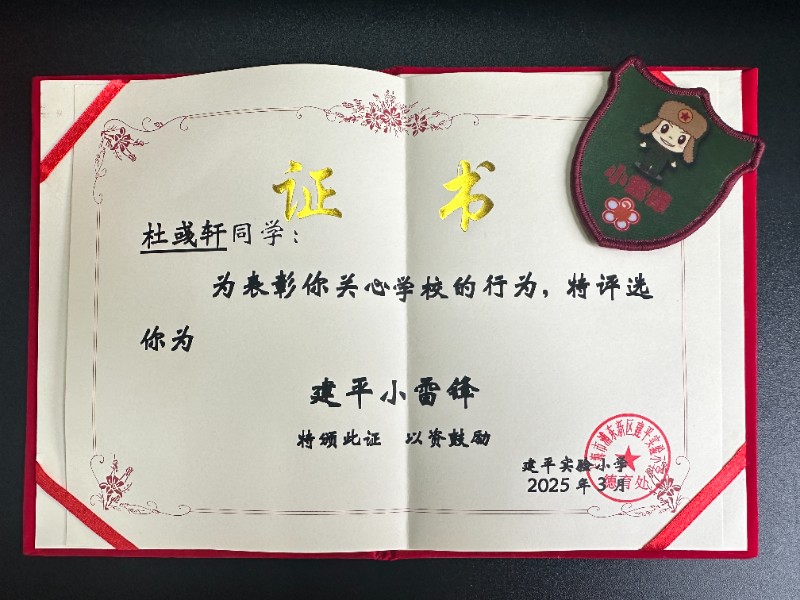 证 书
杜彧轩同学：
为表彰你关心学校的行为，特评选
你为
建平小雷锋
特颁此证 以资鼓励
建平实验小学
2025年3月
上海市浦东新区建平实验小学
德育处
小雷锋